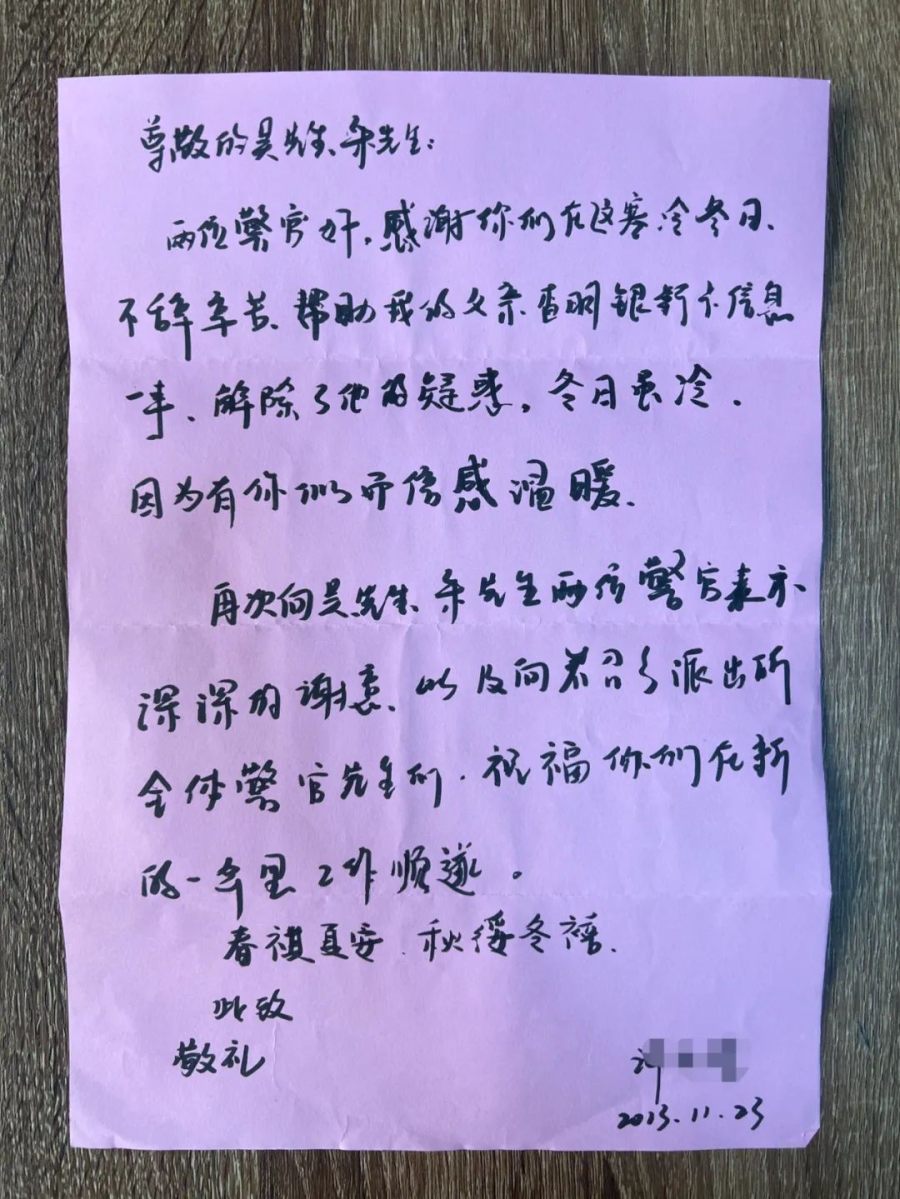 尊敬的吴先生、余先生:
两位警官好,感谢你们在这寒冷冬日、
不辞辛苦、帮助我的父亲查明银行卡信息
一事、解除了他的疑惑,冬日虽冷.
因为有你们而倍感温暖.
再次向吴先生、余先生两位警官表示
深深的谢意、以及向 派出所
全体警官先生们.祝福你们在新
的一年里工作顺遂。
春祺夏安.秋绥冬禧.
此致
敬礼
许
2023.11.23